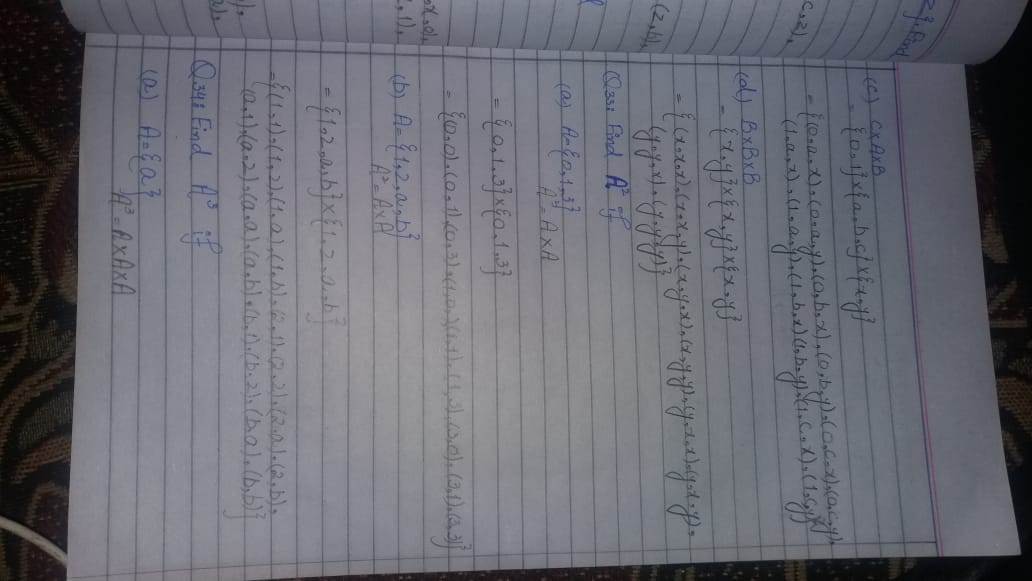 2}. Find
(c) C×A×B
= {0,1}×{a,b,c}×{x,y}
c,z),
= {(0,a,x),(0,a,y),(0,b,x),(0,b,y),(0,c,x),(0,c,y),
(1,a,x),(1,a,y),(1,b,x)(1,b,y),(1,c,x),(1,c,y)}
(d) B×B×B
= {x,y}×{x,y}×{x,y}
= {(x,x,x),(x,x,y),(x,y,x),(x,y,y),(y,x,x),(y,x,y),
(z,b),
(y,y,x),(y,y,y)}
Q33: Find A² if
(a) A={0,1,3}
A²=A×A
= {0,1,3}×{0,1,3}
= {(0,0),(0,1),(0,3),(1,0,)(1,1),(1,3),(3,0),(3,1),(3,3)}
,x,0),
,1),
(b) A={1,2,a,b}
A²=A×A
= {1,2,a,b}×{1,2,a,b}
={(1,1),(1,2),(1,a),(1,b),(2,1),(2,2),(2,a),(2,b),
(a,1),(a,2),(a,a),(a,b),(b,1),(b,2),(b,a),(b,b)}
Q34: Find A³ if
(a) A={a}
A³=A×A×A